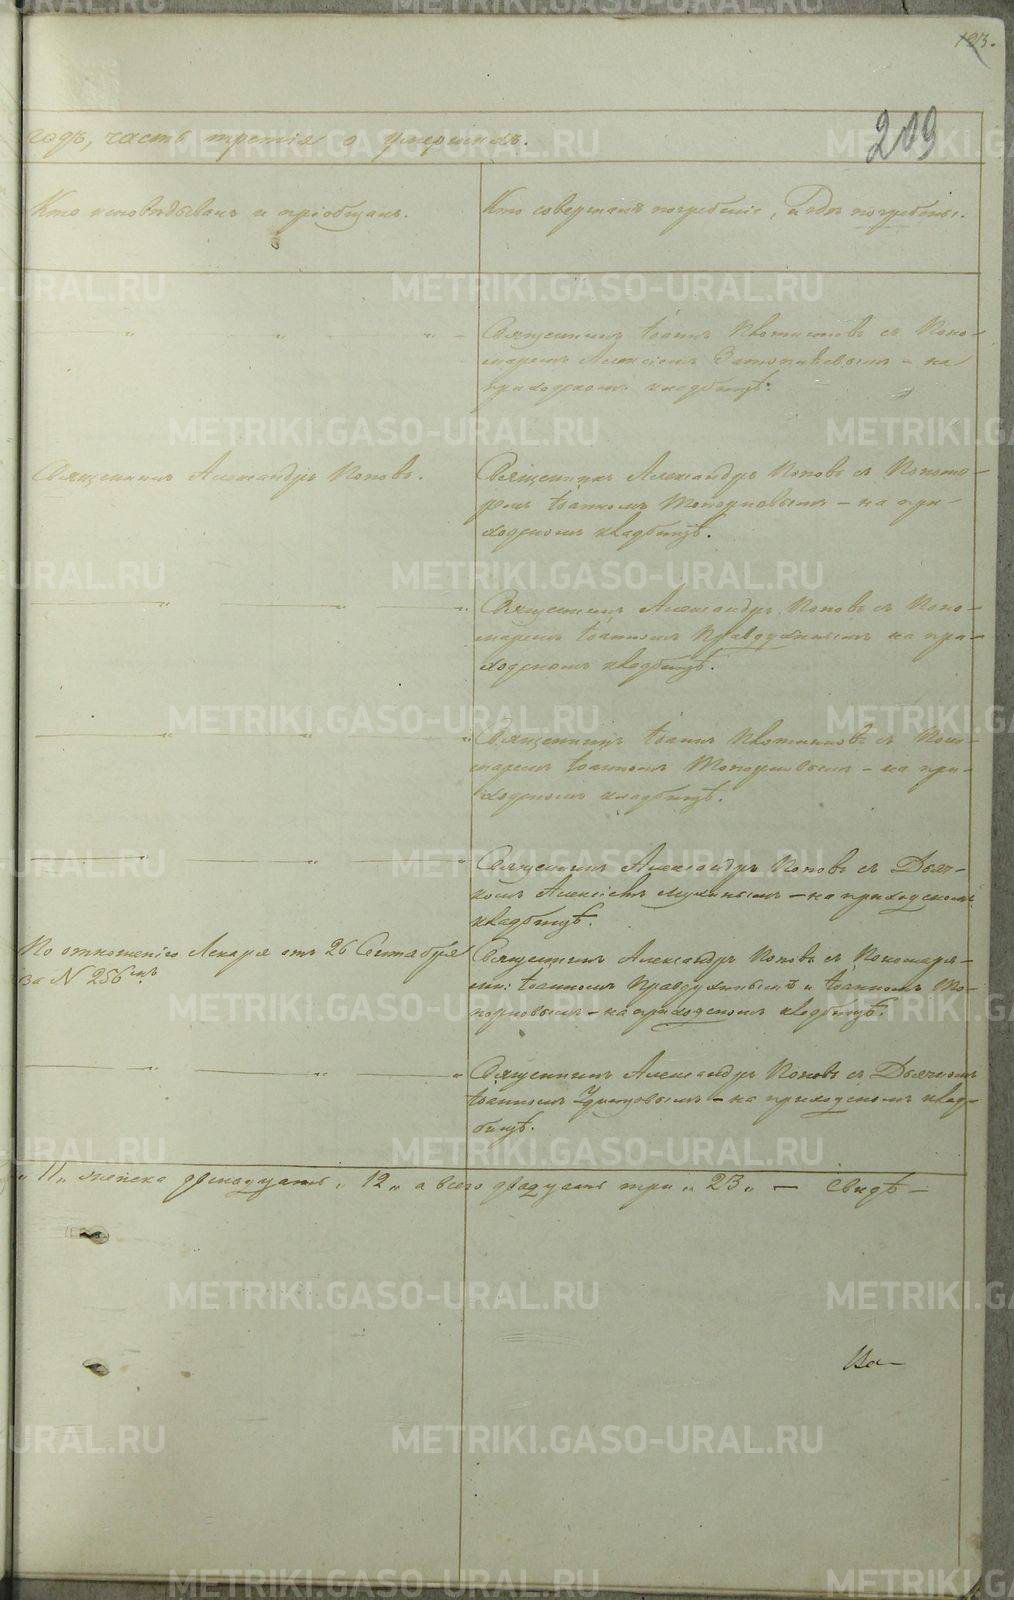 123.
209
годъ, часть третія о умершихъ.
Кто исповѣдывалъ и пріобщалъ.
Кто совершалъ погребеніе, и гдѣ погребены.
Священникъ Іоаннъ съ Поно-
маремъ Алексіемъ – на
приходскомъ кладбищѣ.
Священникъ Александръ Поповъ.
Священникъ Александръ Поповъ съ Понома-
ремъ Іоанномъ Топорковымъ – на при-
ходскомъ кладбищѣ.
Священникъ Александръ Поповъ съ Поно-
маремъ Іоанномъ Правдухинымъ на при-
ходскомъ кладбищѣ.
Священникъ Іоаннъ съ Поно-
маремъ Іоанномъ Топорковымъ – на при-
ходскомъ кладбищѣ.
Священникъ Александръ Поповъ съ Дьяч-
комъ Алексіемъ – на приходскомъ
кладбищѣ.
По отношенію Лекаря отъ 26 Сентября
за N 256мъ
Священникъ Александръ Поповъ съ Пономаря-
ми: Іоанномъ Правдухинымъ и Іоанномъ То-
порковымъ – на приходскомъ кладбищѣ.
Священникъ Александръ Поповъ съ Дьячкомъ
Іоанномъ – на приходскомъ клад-
бищѣ.
„ 11 „ женска двенадцать „ 12 „ а всего двадцать три „ 23 „ – Свидѣ –
METRIKI.GASO-URAL.RU